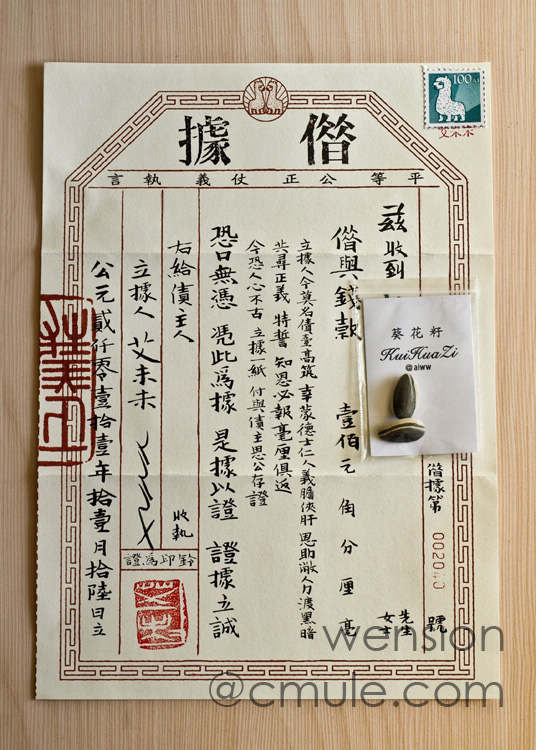 100
艾未未
借據
平等公正仗義執言
借據第
號
茲收到
先生
女士
借與錢款 壹佰元角分厘毫
立據人今莫名債臺高筑 幸蒙德士仁人義膽俠肝 恩助敝人力渡黑暗
共尋正義 特誓 知恩必報毫厘俱返
今恐人心不古 立據一紙 付與債主思公存證
恐口無憑 憑此爲據 是據以證 證據立誠
右給債主人 收執
立據人 艾未未
鈐印爲證
公元貳仟零壹拾壹年拾壹月拾陸日立
葵花籽
KuiHuaZi
@aiww
wension
@cmule.com